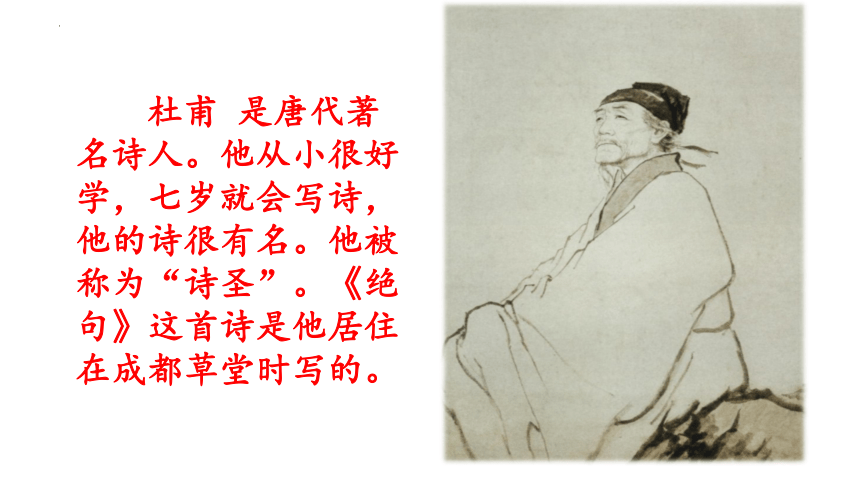 杜甫 是唐代著
名诗人。他从小很好
学，七岁就会写诗，
他的诗很有名。他被
称为“诗圣”。《绝
句》这首诗是他居住
在成都草堂时写的。